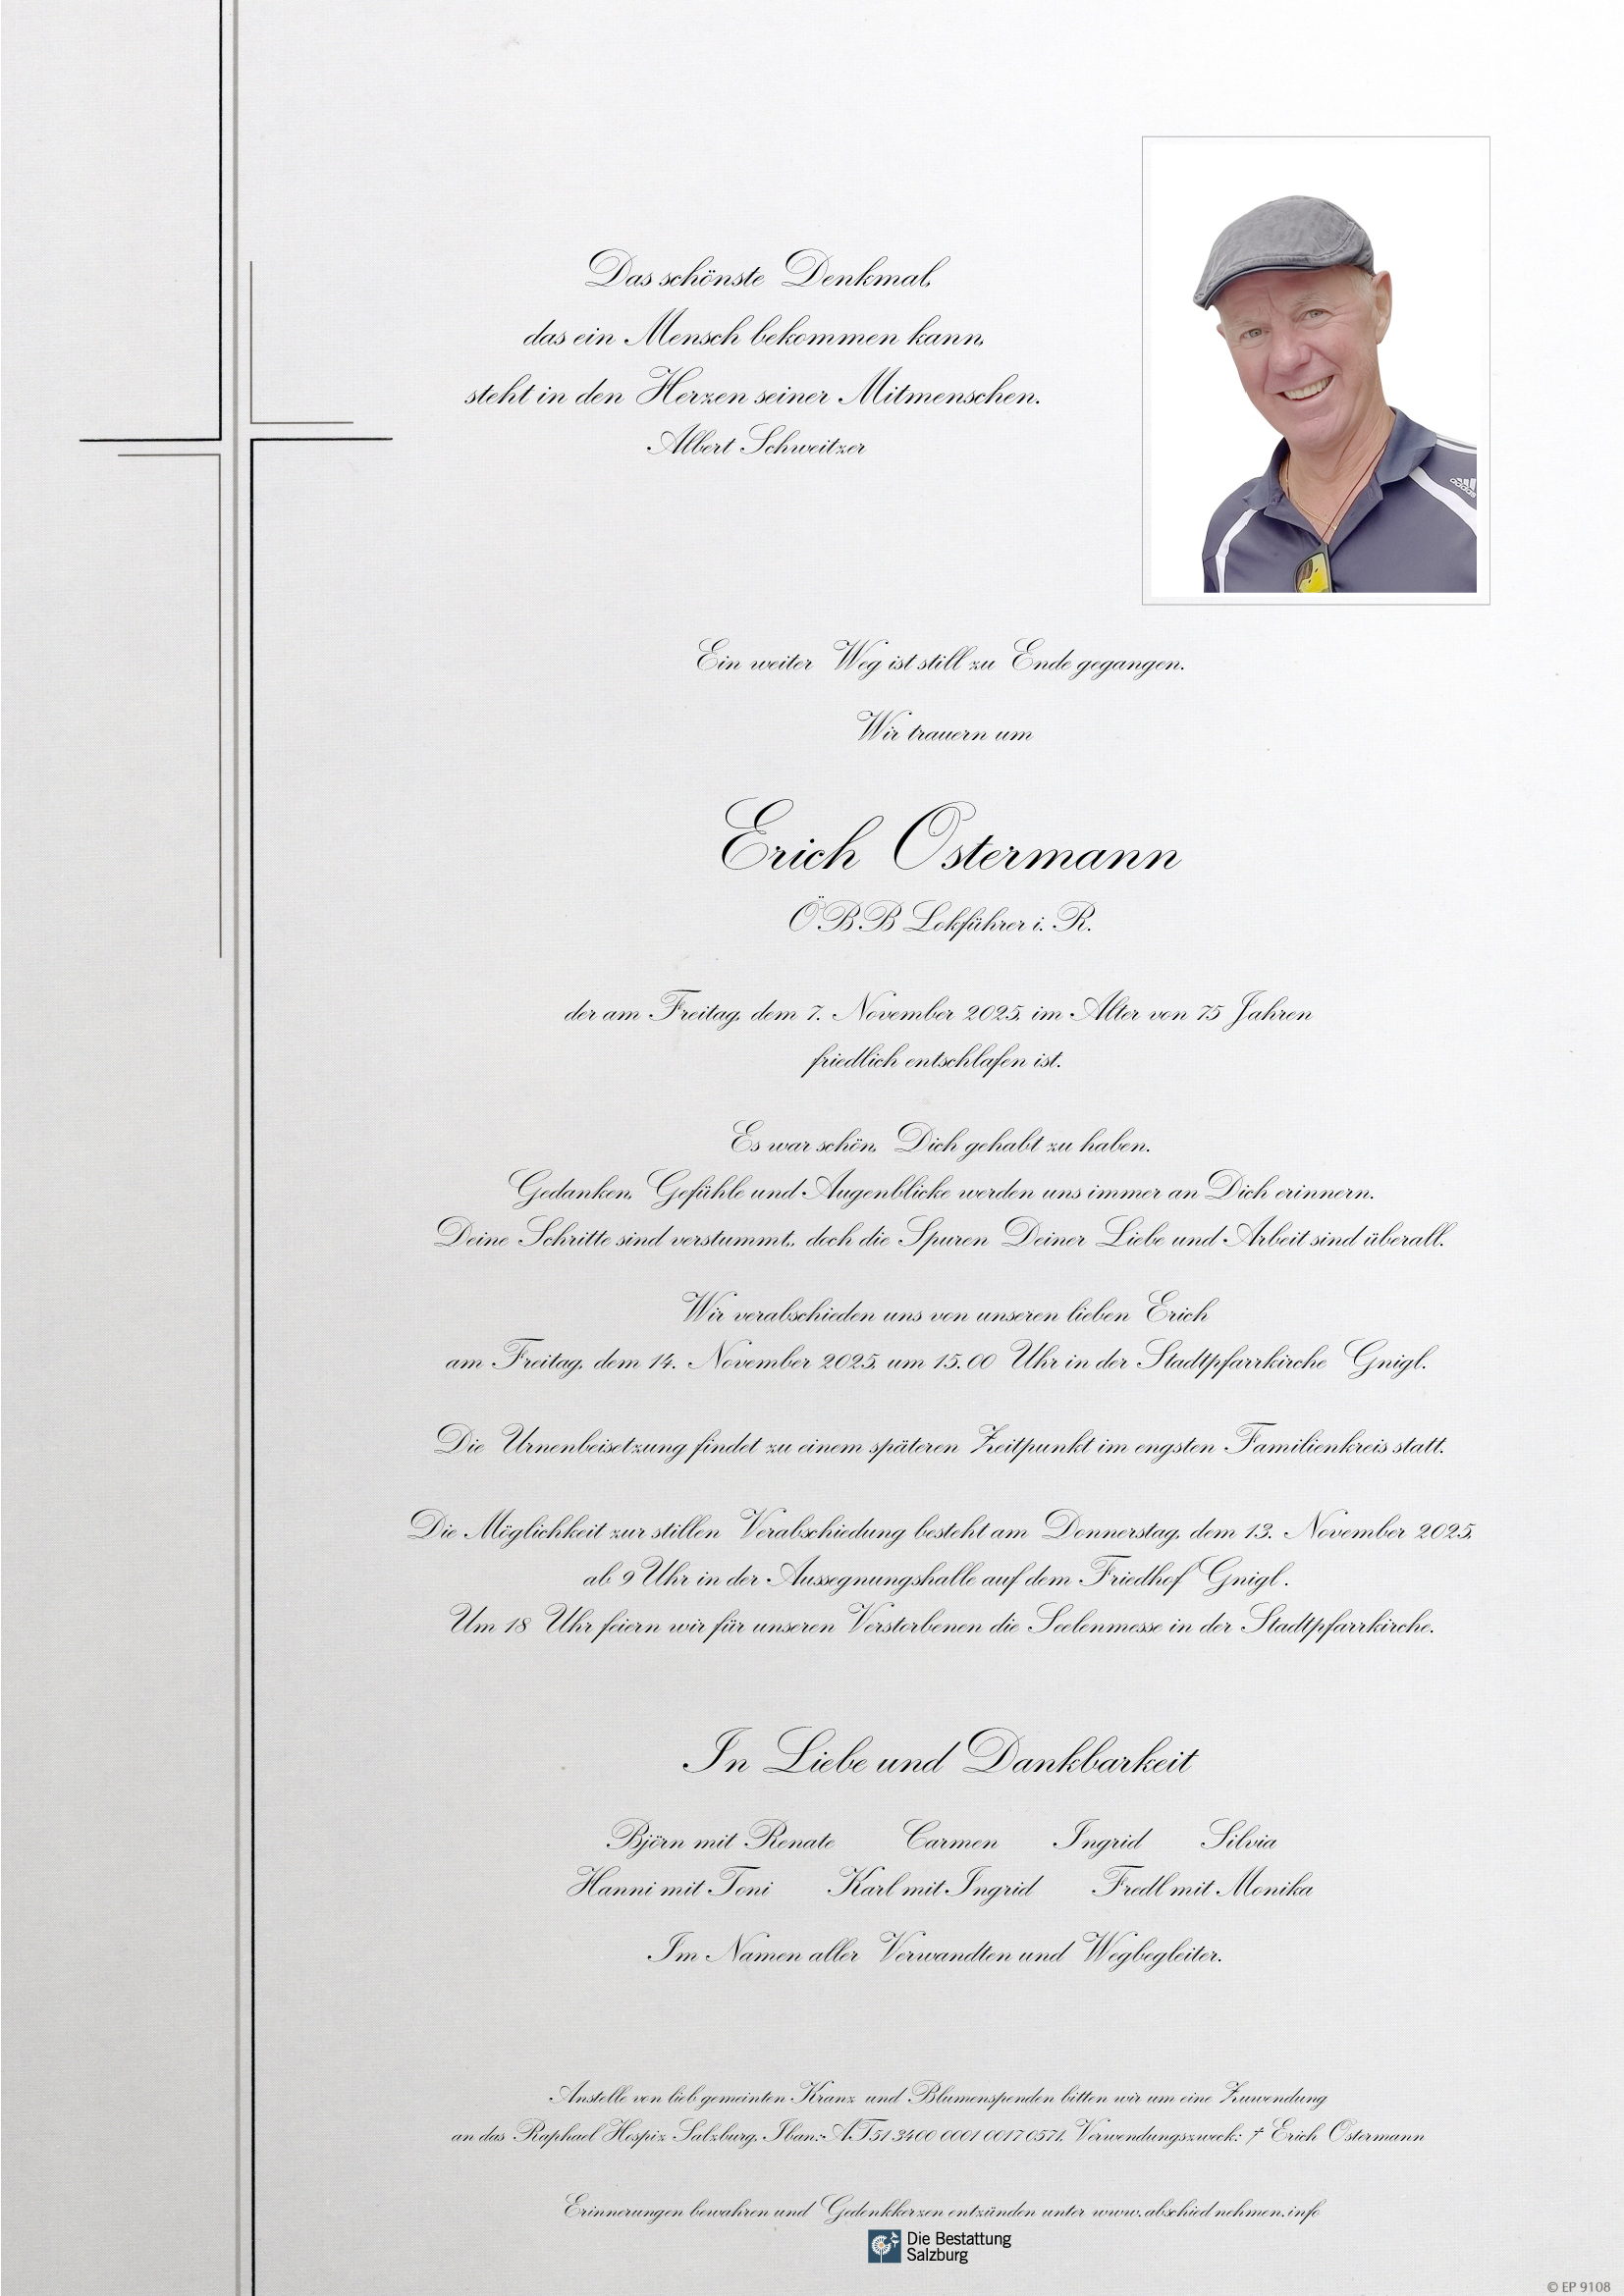 Das schönste Denkmal,
das ein Mensch bekommen kann,
steht in den Herzen seiner Mitmenschen.
Albert Schweitzer
adidas
Ein weiter Weg ist still zu Ende gegangen.
Wir trauern um
Erich Ostermann
ÖBB Lokführer i. R.
der am Freitag, dem 7. November 2025, im Alter von 75 Jahren
friedlich entschlafen ist.
Es war schön, Dich gehabt zu haben.
Gedanken, Gefühle und Augenblicke werden uns immer an Dich erinnern.
Deine Schritte sind verstummt, doch die Spuren Deiner Liebe und Arbeit sind überall.
Wir verabschieden uns von unseren lieben Erich
am Freitag, dem 14. November 2025, um 15.00 Uhr in der Stadtpfarrkirche Gnigl.
Die Urnenbeisetzung findet zu einem späteren Zeitpunkt im engsten Familienkreis statt.
Die Möglichkeit zur stillen Verabschiedung besteht am Donnerstag, dem 13. November 2025,
ab 9 Uhr in der Aussegnungshalle auf dem Friedhof Gnigl.
Um 18 Uhr feiern wir für unseren Verstorbenen die Seelenmesse in der Stadtpfarrkirche.
In Liebe und Dankbarkeit
Björn mit Renate Carmen Ingrid Silvia
Hanni mit Toni Karl mit Ingrid Fredl mit Monika
Im Namen aller Verwandten und Wegbegleiter.
Anstelle von lieb gemeinten Kranz- und Blumenspenden bitten wir um eine Zuwendung
an das Raphael Hospiz Salzburg, Iban: AT51 3400 0001 0017 0571, Verwendungszweck: † Erich Ostermann
Erinnerungen bewahren und Gedenkkerzen entzünden unter www.abschied nehmen.info
Die Bestattung
Salzburg
© EP 9108